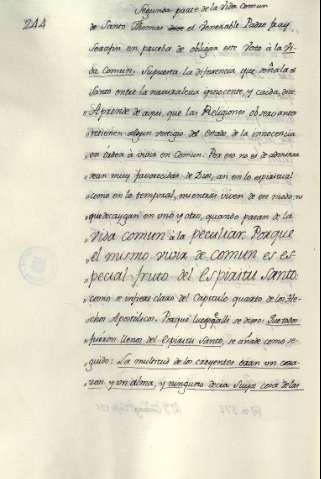 Segunda parte de la Vida Comun
244
de Santo Thomas el Venerable Padre fray
Serafin en prueba de obligar este Voto à la Vi-
da Comun. Supuesta la diferencia que señala el
Santo entre la naturaleza ignocente, y caida, dice:
Aprende de aqui, que las Religiones observantes
retienen algun vestigio del Estado de la innocencia
en orden à vivir en Comun. Por eso no es de admirar
sean muy favorecidas de Dios, asi en lo espiritual
como en lo temporal, mientras viven de ese modo, y
que decaygan en uno y otro, quando pasan de la
vida comun à la peculiar. Porque
el mismo vivir de comun es es-
pecial fruto del Espiritu Santo:
como se infiere claro del Capitulo quarto de los He-
chos Apostolicos. Porque luego alli se dixo: Que todos
fuéron llenos del Espiritu Santo, se añade como se-
guido: La multitud de los creyentes eran un cora-
zon, y un alma, y ninguno decia suya cosa de las